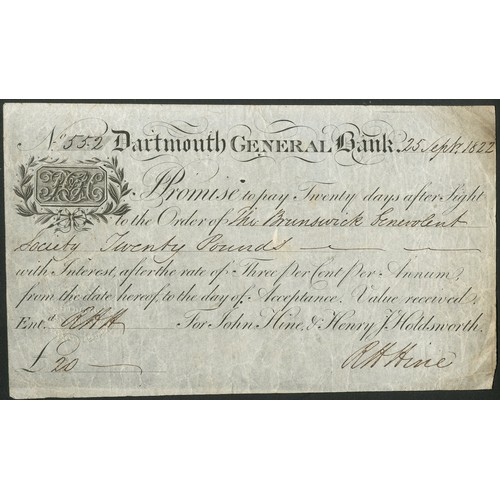 No. 552 Dartmouth GENERAL Bank. 25 Sept. 1822
I Promise to pay Twenty days after Sight
to the Order of The Brunswick Benevolent
Society Twenty Pounds
with Interest, after the rate of Three Per Cent Per Annum,
from the date hereof to the day of Acceptance. Value received,
Ent.d RHH For John Hine, & Henry J. Holdsworth.
£ 20 RH Hine